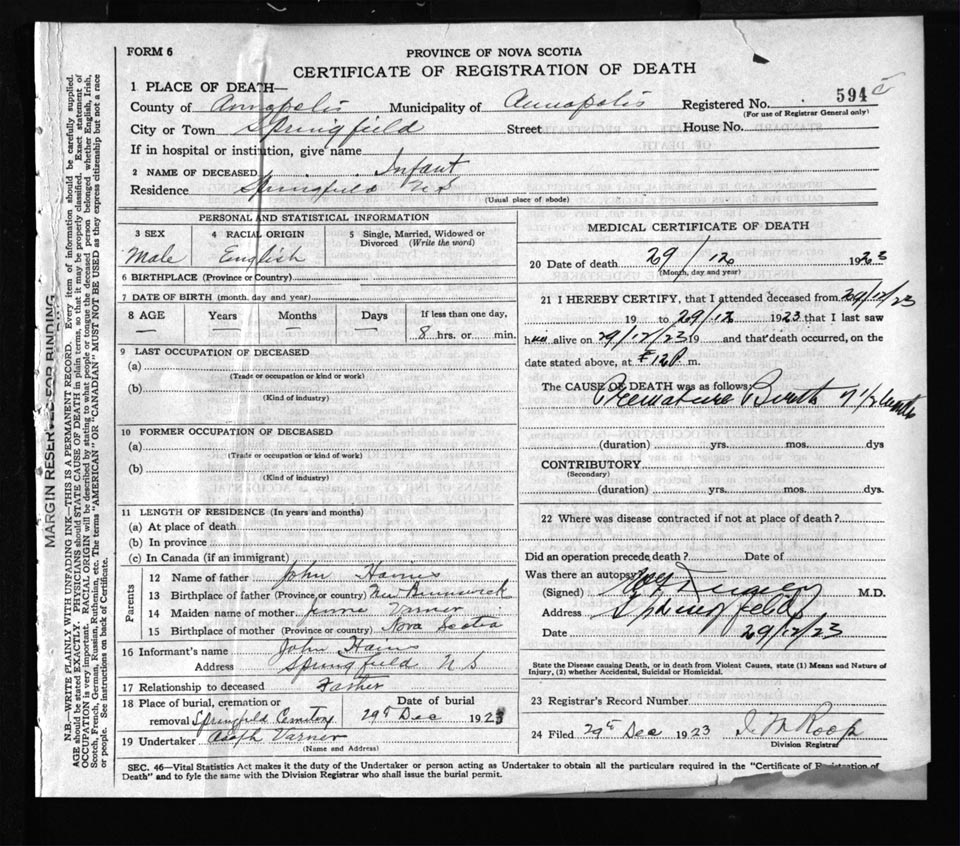 FORM 6
PROVINCE OF NOVA SCOTIA
CERTIFICATE OF REGISTRATION OF DEATH
1 PLACE OF DEATH—
County of Annapolis Municipality of Annapolis Registered No. 594 c
(For use of Registrar General only)
City or Town Springfield Street House No.
If in hospital or institution, give name
2 NAME OF DECEASED Infant
Residence Springfield N S
(Usual place of abode)
PERSONAL AND STATISTICAL INFORMATION
3 SEX 4 RACIAL ORIGIN 5 Single, Married, Widowed or Divorced (Write the word)
Male English
6 BIRTHPLACE (Province or Country)
7 DATE OF BIRTH (month, day and year)
8 AGE Years Months Days If less than one day,
— — — — 8 hrs. or min.
9 LAST OCCUPATION OF DECEASED
(a)
(Trade or occupation or kind or work)
(b)
(Kind of industry)
10 FORMER OCCUPATION OF DECEASED
(a)
(Trade or occupation or kind of work)
(b)
(Kind of industry)
11 LENGTH OF RESIDENCE (In years and months)
(a) At place of death
(b) In province
(c) In Canada (if an immigrant)
Parents
12 Name of father John Hains
13 Birthplace of father (Province or country) New Brunswick
14 Maiden name of mother Varner
15 Birthplace of mother (Province or country) Nova Scotia
16 Informant's name John Hains
Address Springfield N S
17 Relationship to deceased Father
18 Place of burial, cremation or removal Springfield Cemetery Date of burial 29th Dec 1923
19 Undertaker Varner
(Name and Address)
MEDICAL CERTIFICATE OF DEATH
20 Date of death 29/12 1923
(Month, day and year)
21 I HEREBY CERTIFY, that I attended deceased from 29/12/23
19 to 29/12 1923 that I last saw
him alive on 29/12/23 19 and that death occurred, on the
date stated above, at 12 P. m.
The CAUSE OF DEATH was as follows:
Premature Birth 7 1/2 months
(duration) yrs. mos. dys
CONTRIBUTORY
(Secondary)
(duration) yrs. mos. dys.
22 Where was disease contracted if not at place of death?
Did an operation precede death? Date of
Was there an autopsy
(Signed) M.D.
Address Springfield
Date 29/12/23
State the Disease causing Death, or in death from Violent Causes, state (1) Means and Nature of
Injury, (2) whether Accidental, Suicidal or Homicidal.
23 Registrar's Record Number
24 Filed 29th Dec 1923 I M Roop
Division Registrar
SEC. 46—Vital Statistics Act makes it the duty of the Undertaker or person acting as Undertaker to obtain all the particulars required in the "Certificate of Registration of
Death" and to fyle the same with the Division Registrar who shall issue the burial permit.
MARGIN RESERVED FOR BINDING
N.B.—WRITE PLAINLY WITH UNFADING INK—THIS IS A PERMANENT RECORD. Every item of information should be carefully supplied.
AGE should be stated EXACTLY. PHYSICIANS should STATE CAUSE OF DEATH in plain terms, so that it may be properly classified. Exact statement of
OCCUPATION is very important. RACIAL ORIGIN will be described by stating to what people or tongue the deceased person belonged whether English, Irish,
Scotch, French, German, Russian, Ruthenian, etc. The terms "AMERICAN" OR "CANADIAN" MUST NOT BE USED as they express citizenship but not a race
or people. See instructions on back of Certificate.